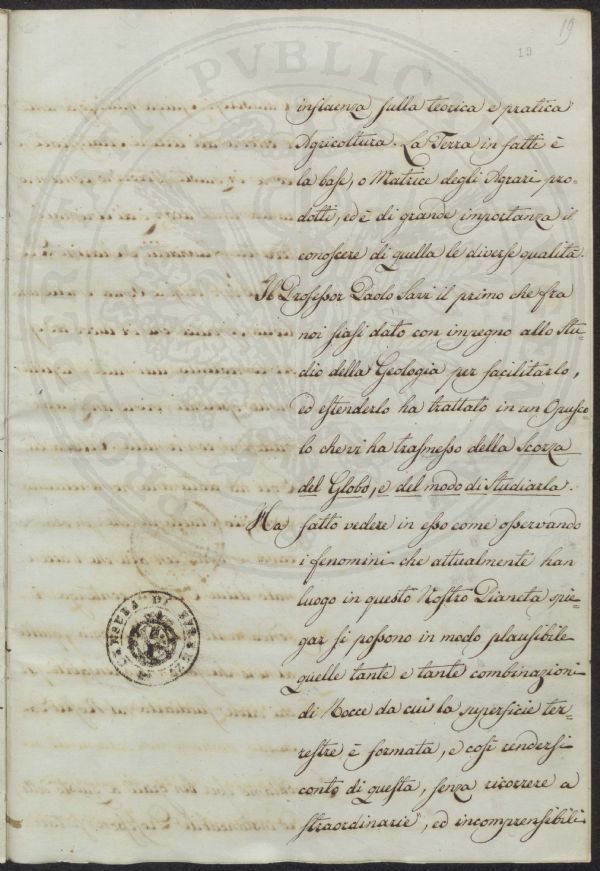 19
19
influenza sulla teorica e pratica
Agricoltura. La Terra in fatti è
la base, o Matrice degli Agrari pro-
dotti, ed è di grande importanza il
conoscere di quella le diverse qualità.
Il Professor Paolo Savi il primo che fra
noi siasi dato con impegno allo Stu-
dio della Geologia per facilitarlo,
ed estenderlo ha trattato in un Opusco
lo che vi ha trasmesso della Scorza
del Globo, e del modo di Studiarla.
Ha fatto vedere in esso come osservando
i fenomini che attualmente han
luogo in questo Nostro Pianeta spie-
gar si possono in modo plausibile
quelle tante e tante combinazioni
di Rocce da cui la superficie ter-
restre è formata, e così rendersi
conto di questa, senza ricorrere a
straordinarie, ed incomprensibili